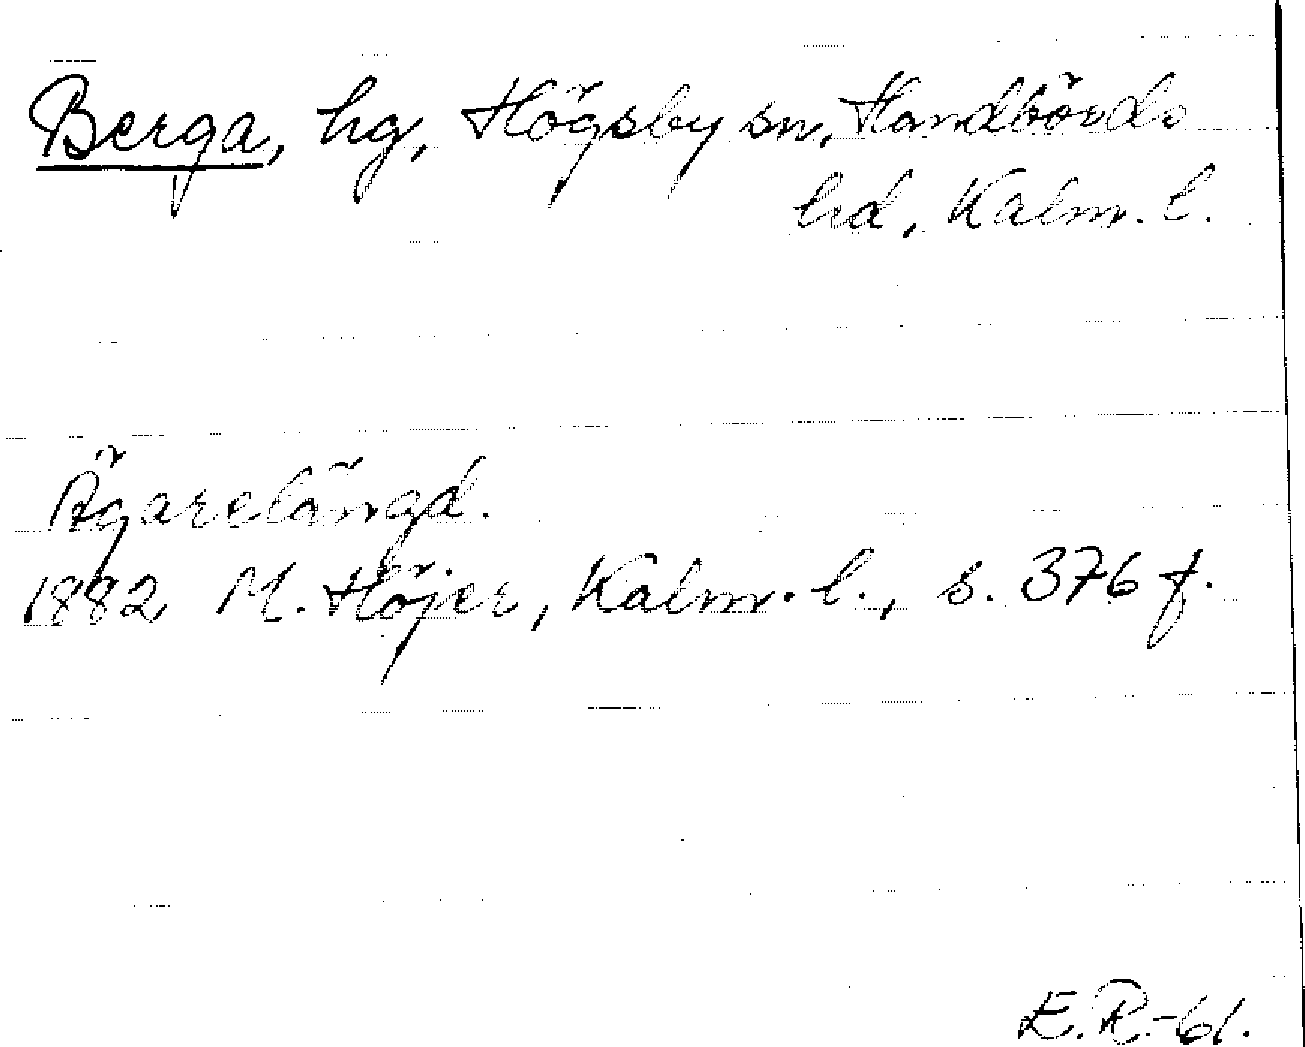 Berga, hg, Högsby sn, Handbörds
hd, Kalm. l.
Ägarelängd.
1882 M. Höjer, Kalm. l., s. 376 f.
E.R.-61.